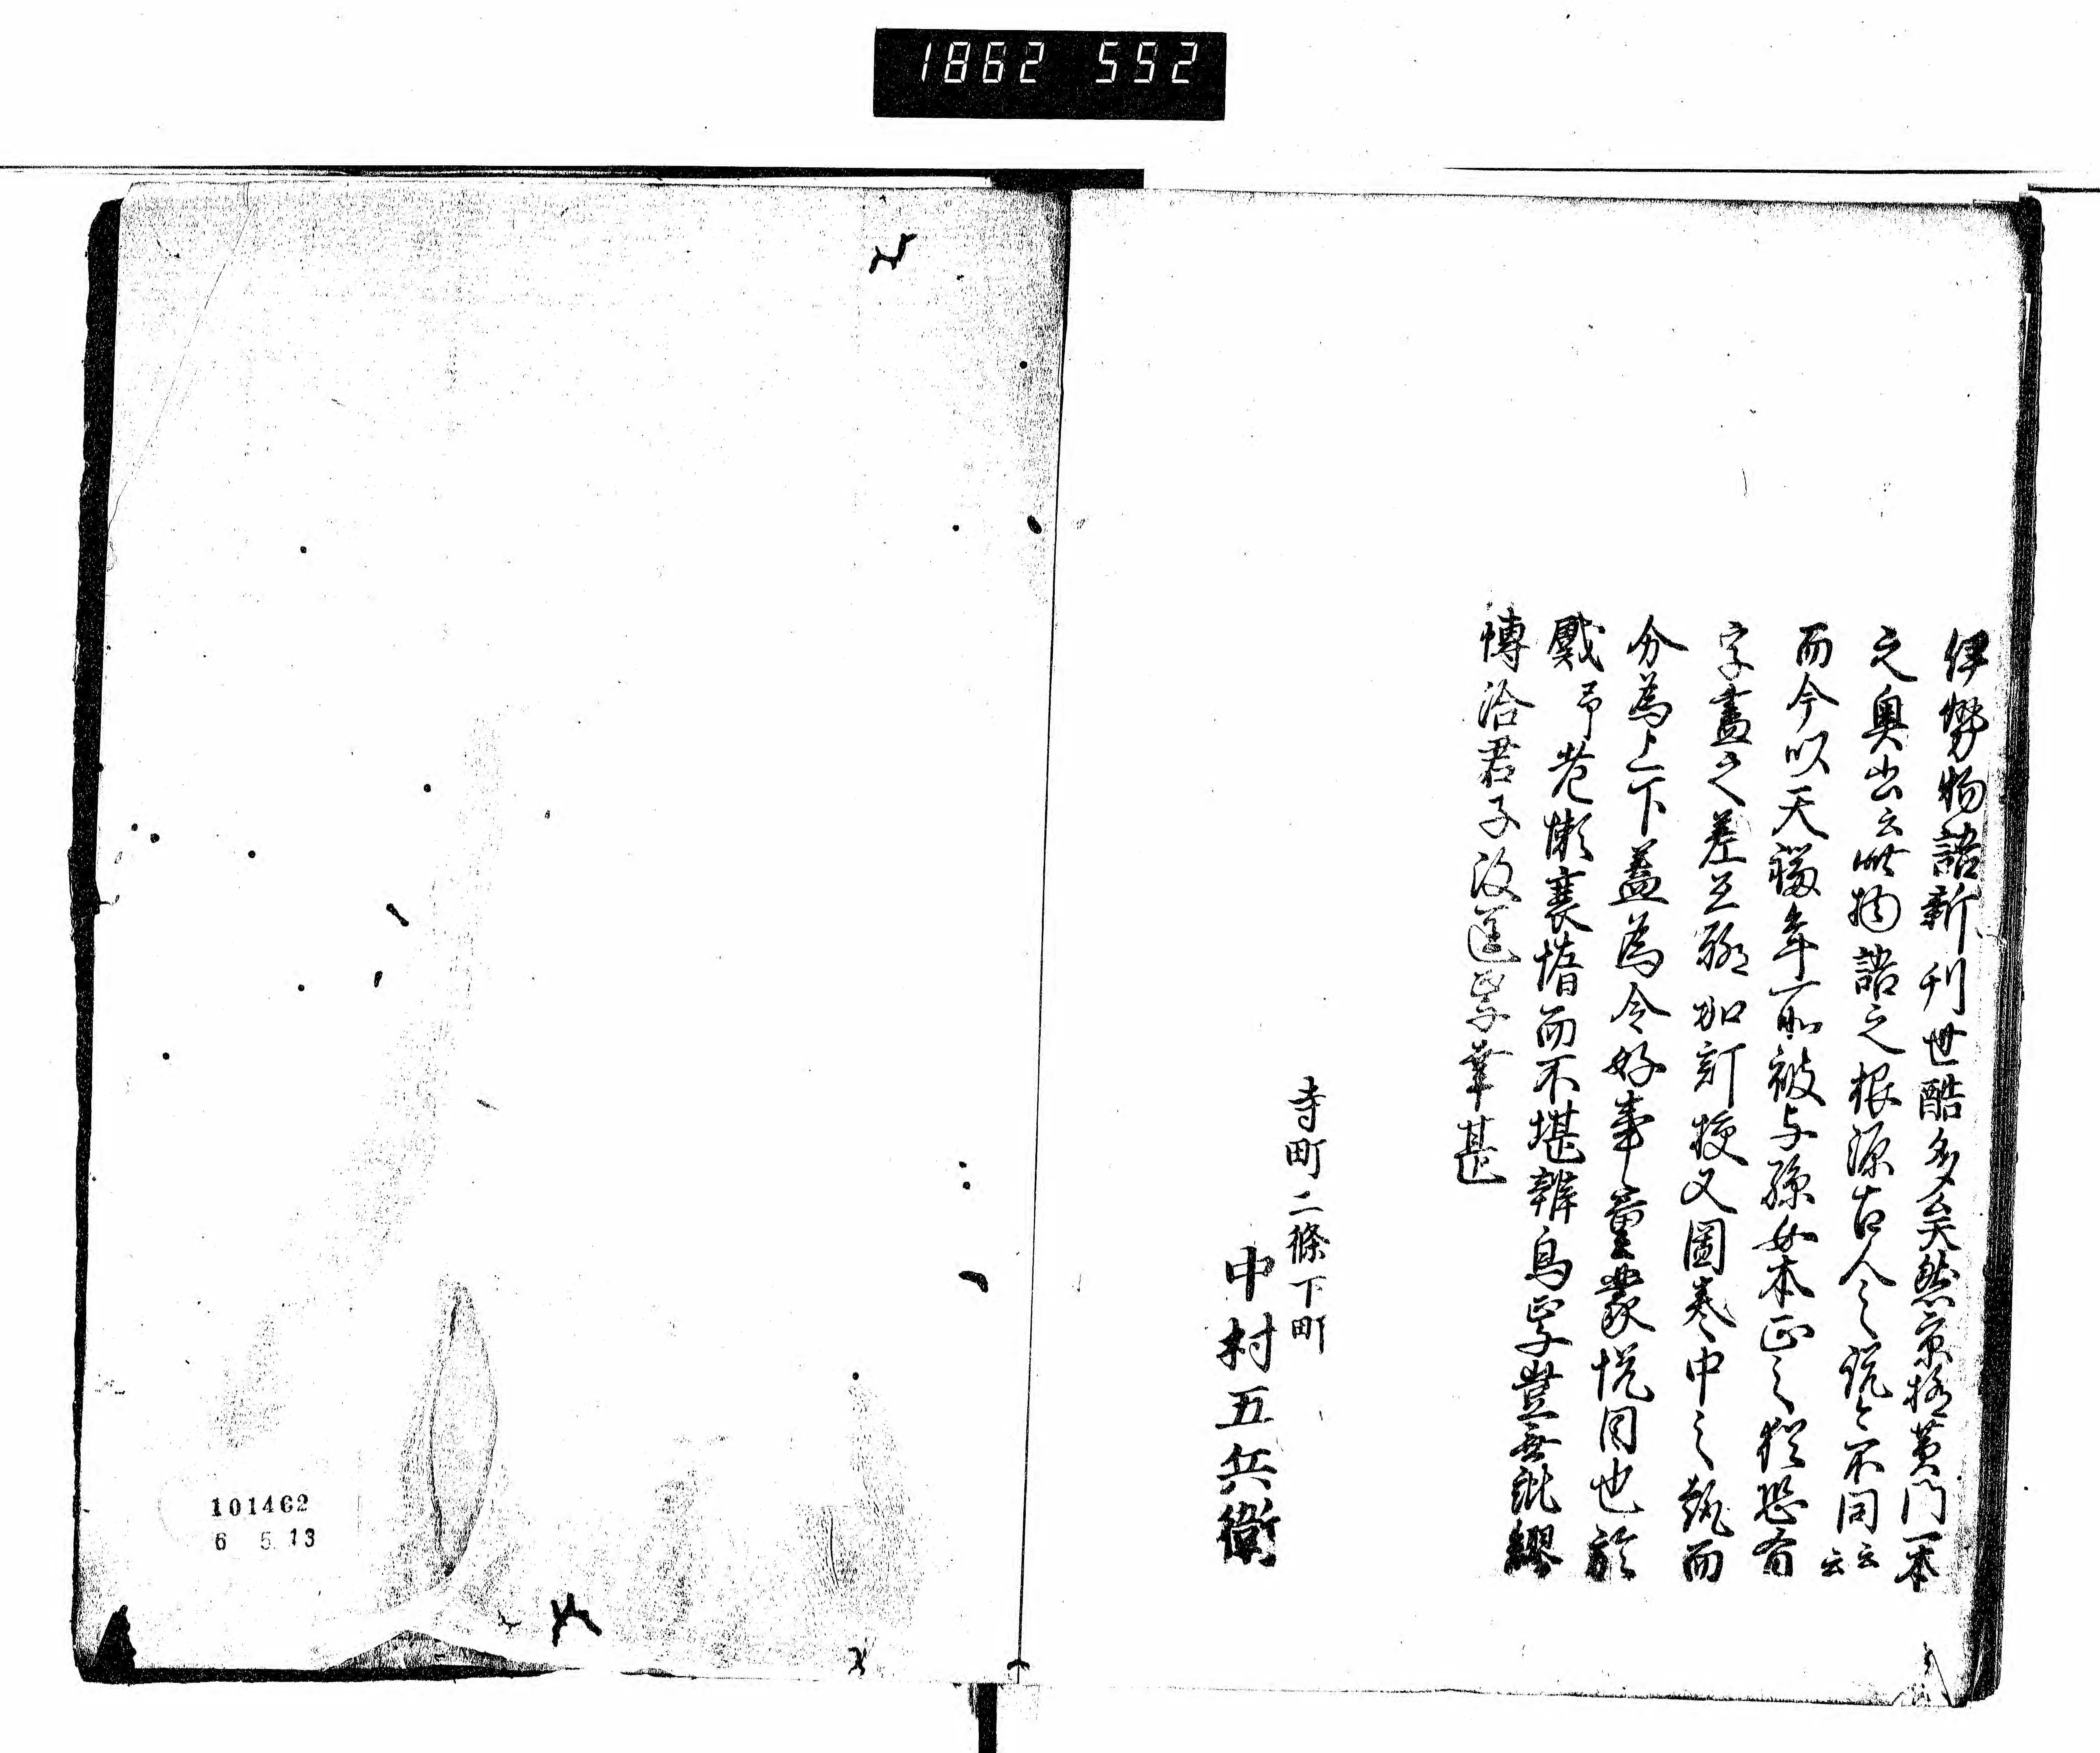 1862 592
伊勢物語新刊世酷多矣然京極黄門一本
之奥出云此物語之根源古人之説々不同云云
而今以天福年所被与孫女本正之猶恐有
字畫之差互聊加訂校又圖巻中之趣而
分為上下蓋為令好事童蒙悦目也於
戲予老懶衰惰而不堪辨烏焉豈無紕繆
博洽君子改匡焉幸甚
寺町二條下町
中村五兵衛
101462
6 5.13